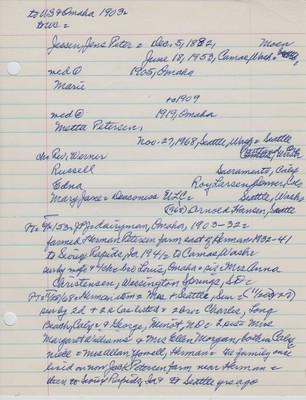 to US & Omaha 1903
Jessen, Jens Peter = Dec. 5, 1882, Moen
June 18, 1953, Camas, Wash =
med ① 1905, Omaha
Marie
1909
med ② 1919, Omaha
Mette Petersen,
Nov. 27, 1968, Seattle, Wash =
ch: Rev. Werner
Russell Sacramento, Calif
Edna Roy Larsen, Denver, Colo
Mary Jane = Deaconess ELC = Seattle, Wash =
(Bro) Arnold Hansen, Seattle
dairyman, Omaha, 1903-32 =
farmed Herman Petersen farm east of Herman 1932-41
to Sioux Rapids, Ia. 1941 = to Camas, Wash =
surv by wife & 4 ch = bro Louis, Omaha = sis = Mrs Anna
Christensen, Weeping Springs,
Herman
surv by 2 d + 2 s Ca = 2 bros Charles, Long
Beach, Calif = & George, Minot, ND = 2 sis = Mrs
Margaret Williams & Mrs Ellen Morgan, both in Calif
niece = Mrs Allan Yowell, Herman = the family once
lived on now Josh Petersen farm near Herman =
then to Sioux Rapids, Ia & to Seattle yrs ago